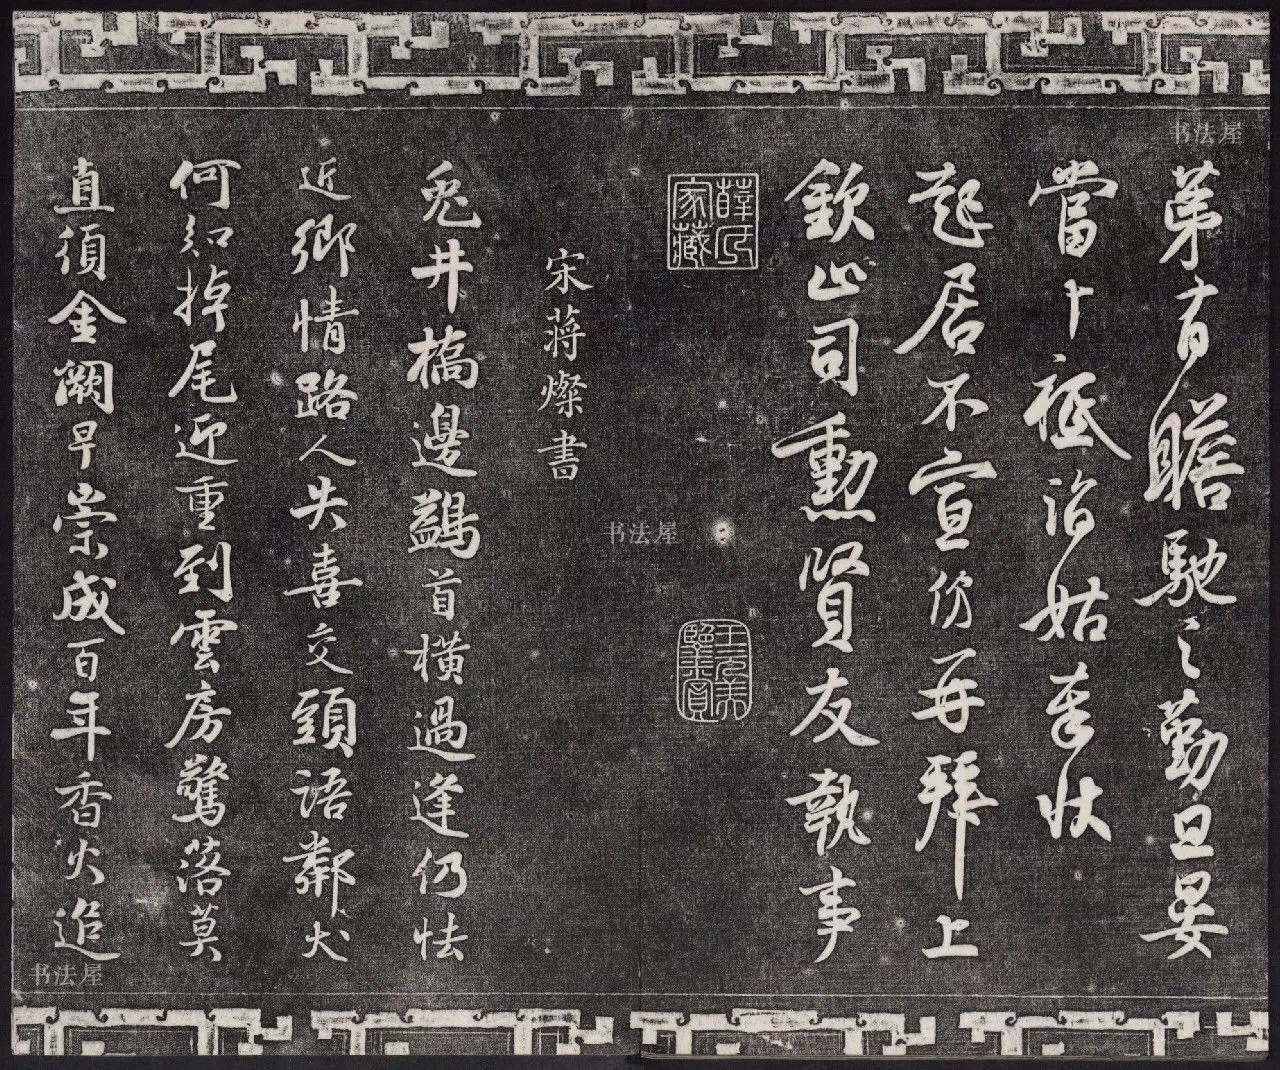 苐有瞻馳之勤旦晏
當卜祗詣姑奉狀
起居不宣份再拜上
欽止司勳賢友執事
薛氏家藏
王元美鑒賞
宋蔣燦書
兎井橋邊鷁首橫過逢仍怯
近鄉情路人失喜交頭語鄰犬
何知掉尾迎重到雲房驚落莫
直須金闕早崇成百年香火追
书法屋
书法屋
书法屋